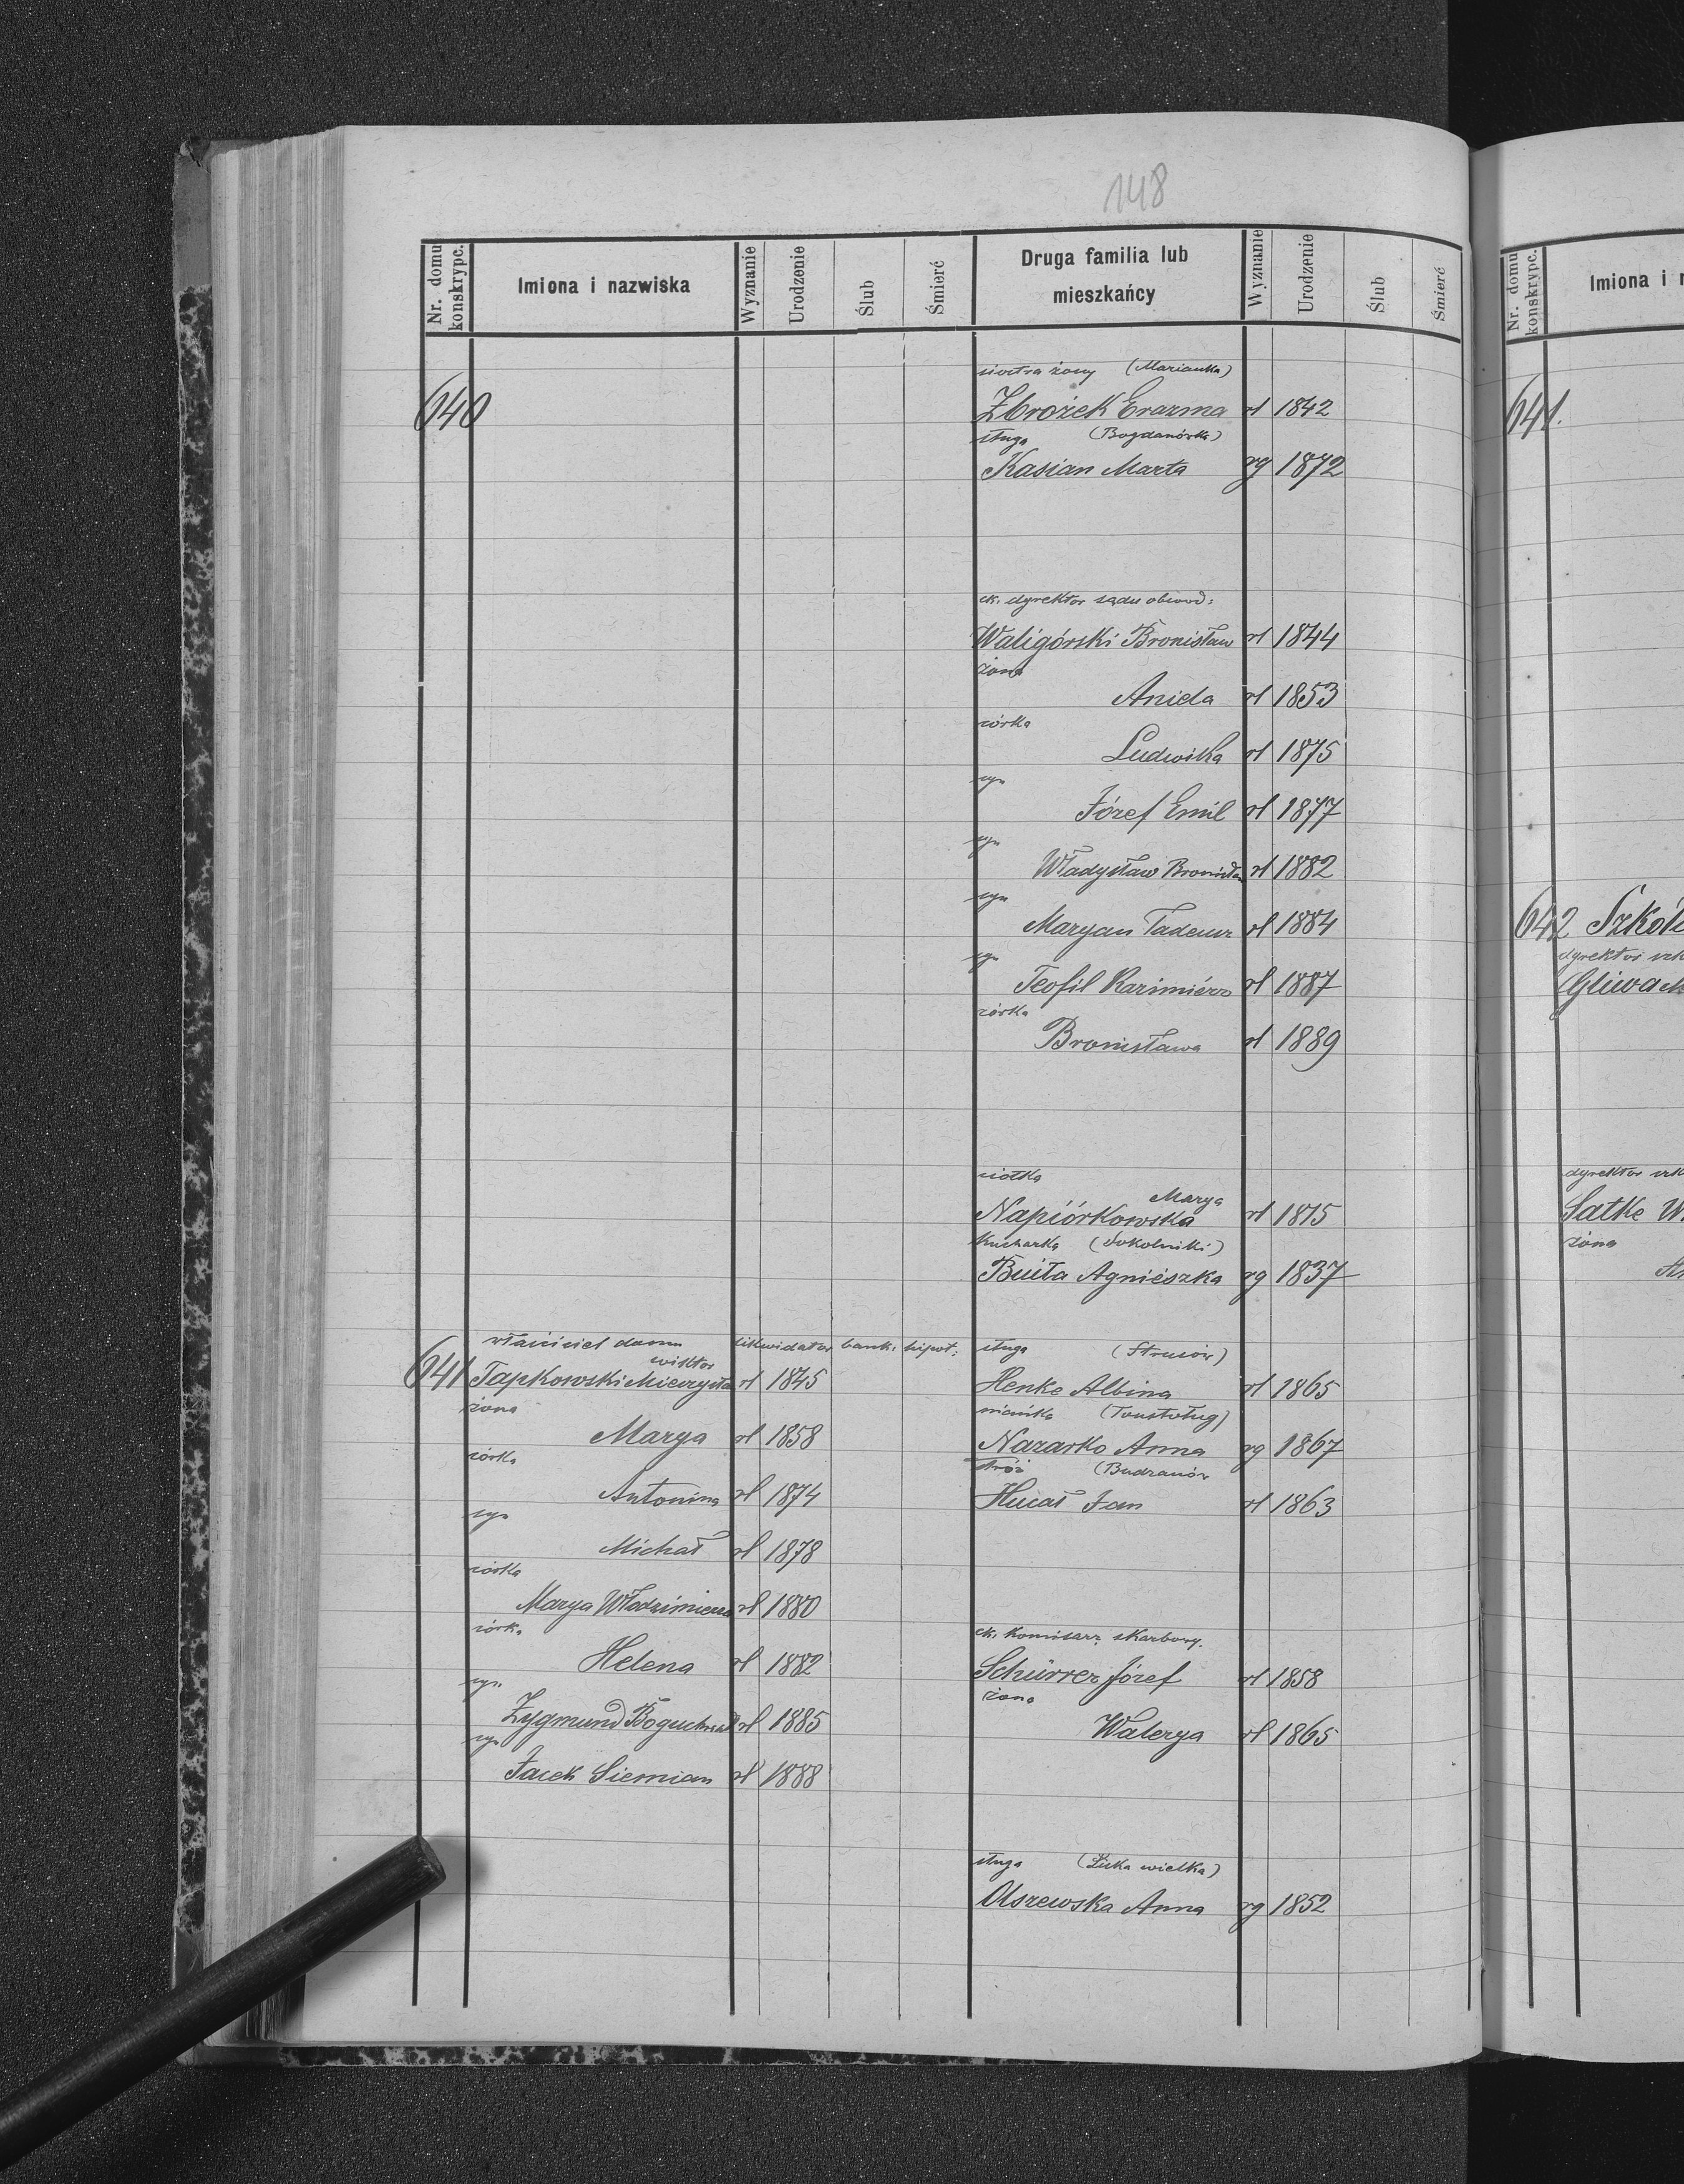 148
Nr. domu konskrypc.
Imiona i nazwiska
Wyznanie
Urodzenie
Ślub
Śmierć
Druga familia lub mieszkańcy
Wyznanie
Urodzenie
Ślub
Śmierć
640
siostra żony (Marianka)
Zbrożek Erazma rl 1842
sługa (Bogdanówka)
Kasian Marta rg 1872
ck. dyrektor sądu obwod:
Waligórski Bronisław rl 1844
żona
Aniela rl 1853
córka
Ludwika rl 1875
syn
Józef Emil rl 1877
syn
Władysław Bronisław rl 1882
syn
Maryan Tadeusz rl 1884
syn
Teofil Kazimiérz rl 1887
córka
Bronisława rl 1889
ciotka
Marya
Napiórkowska rl 1815
kucharka (Sokolniki)
Buiła Agniészka rg 1837
właściciel domu likwidator bank: hipot:
wiktor
641 Tapkowski Mieczysław rl 1845
żona
Marya rl 1858
córka
Antonina rl 1874
syn
Michał rl 1878
córka
Marya Włodzimiera rl 1880
córka
Helena rl 1882
syn
Zygmund Boguchwał rl 1885
syn
Jacek Siemian rl 1888
sługa (Strusów)
Henke Albina rl 1865
niańka (Toustoług)
Nazarko Anna rg 1867
stróż (Budzanów
Hucał Jan rl 1863
ck. komisarz skarbowy.
Schürrer Józef rl 1858
żona
Walerya rl 1865
sługa (Łuka wielka)
Olszewska Anna rg 1852
Nr. domu konskrypc.
Imiona i
641.
642 Szkoł
dyrektor
Gliwa
dyrektor
Satke W.
żona